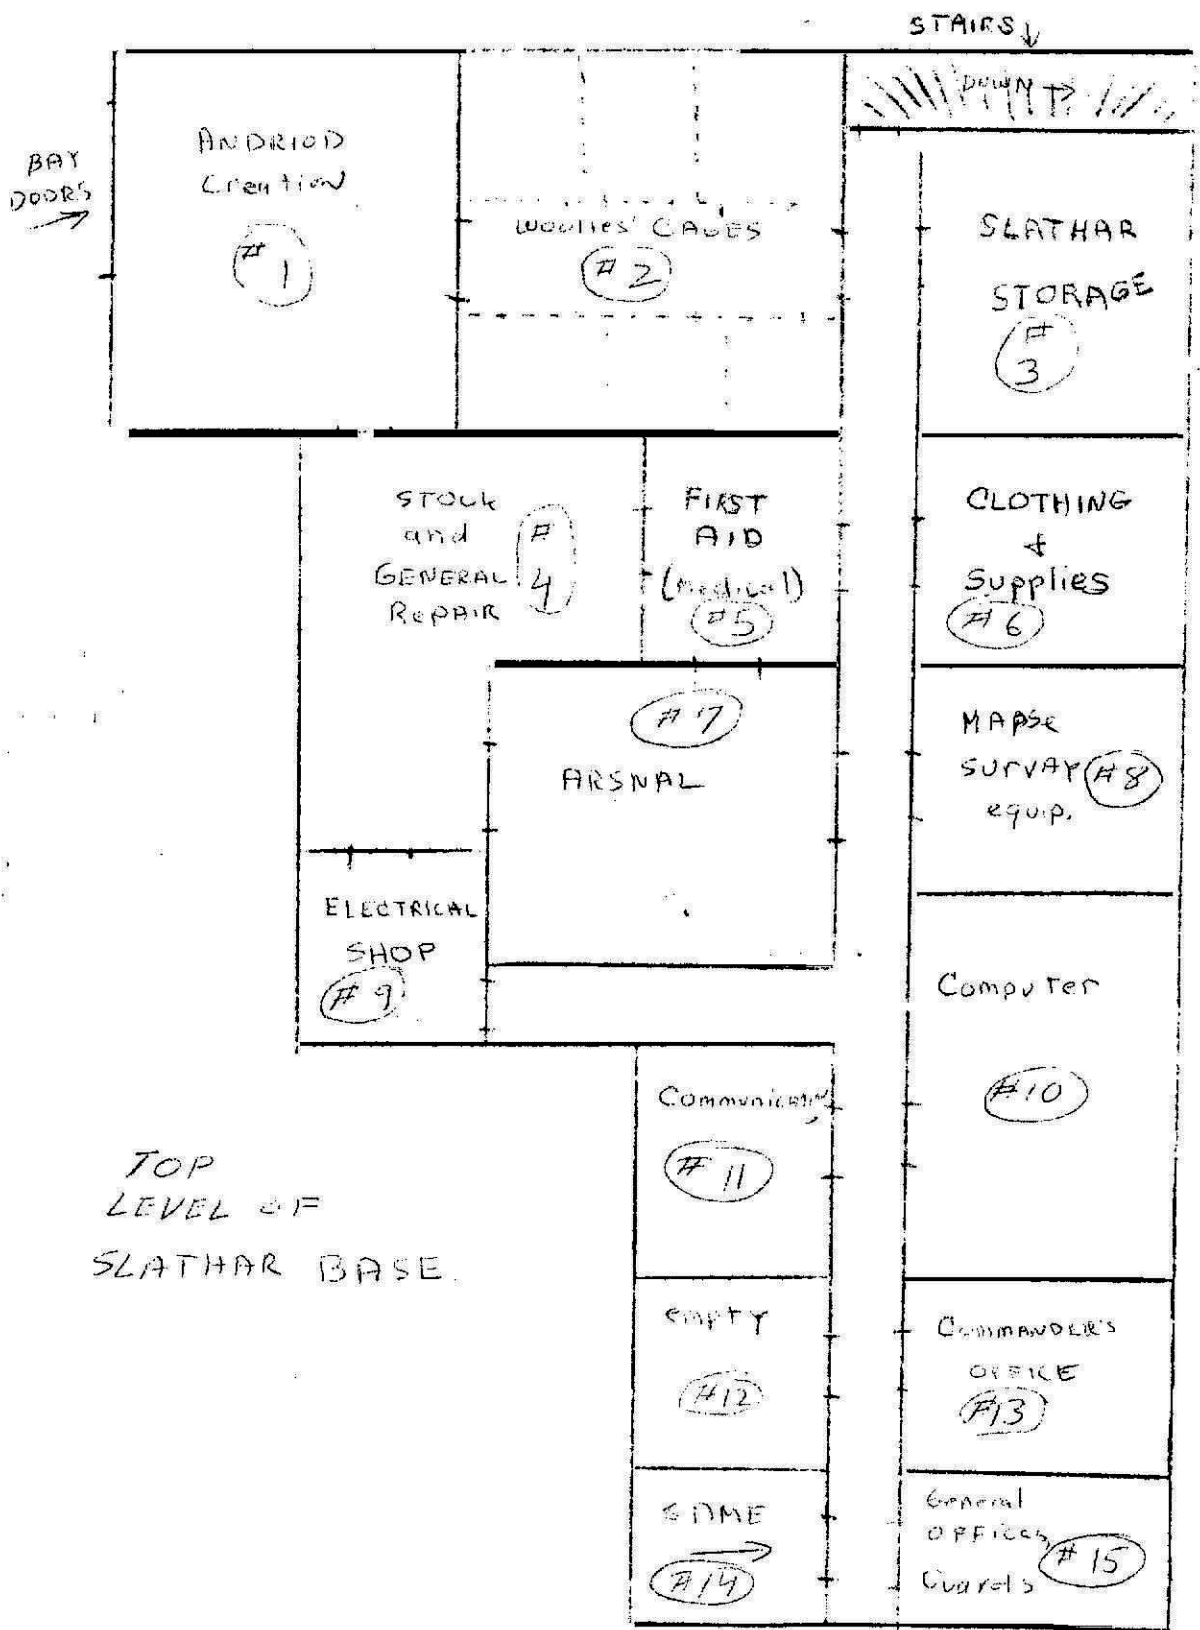 STAIRS
DOWN
BAY
DOORS
ANDRIOD
Creation
# 1
WOOlies' CAGES
# 2
SLATHAR
STORAGE
#
3
STOCK
and
GENERAL
RePAIR
#
4
FIRST
AID
(medical)
#5
CLOTHING
+
Supplies
#6
#7
ARSNAL
MAPS
SURVAY
equip.
#8
ELECTRICAL
SHOP
#9
Computer
#10
Communication
#11
TOP
LEVEL OF
SLATHAR BASE
empty
#12
COMMANDER'S
OFFICE
#13
SAME
#14
General
OFFices,
Guards
#15